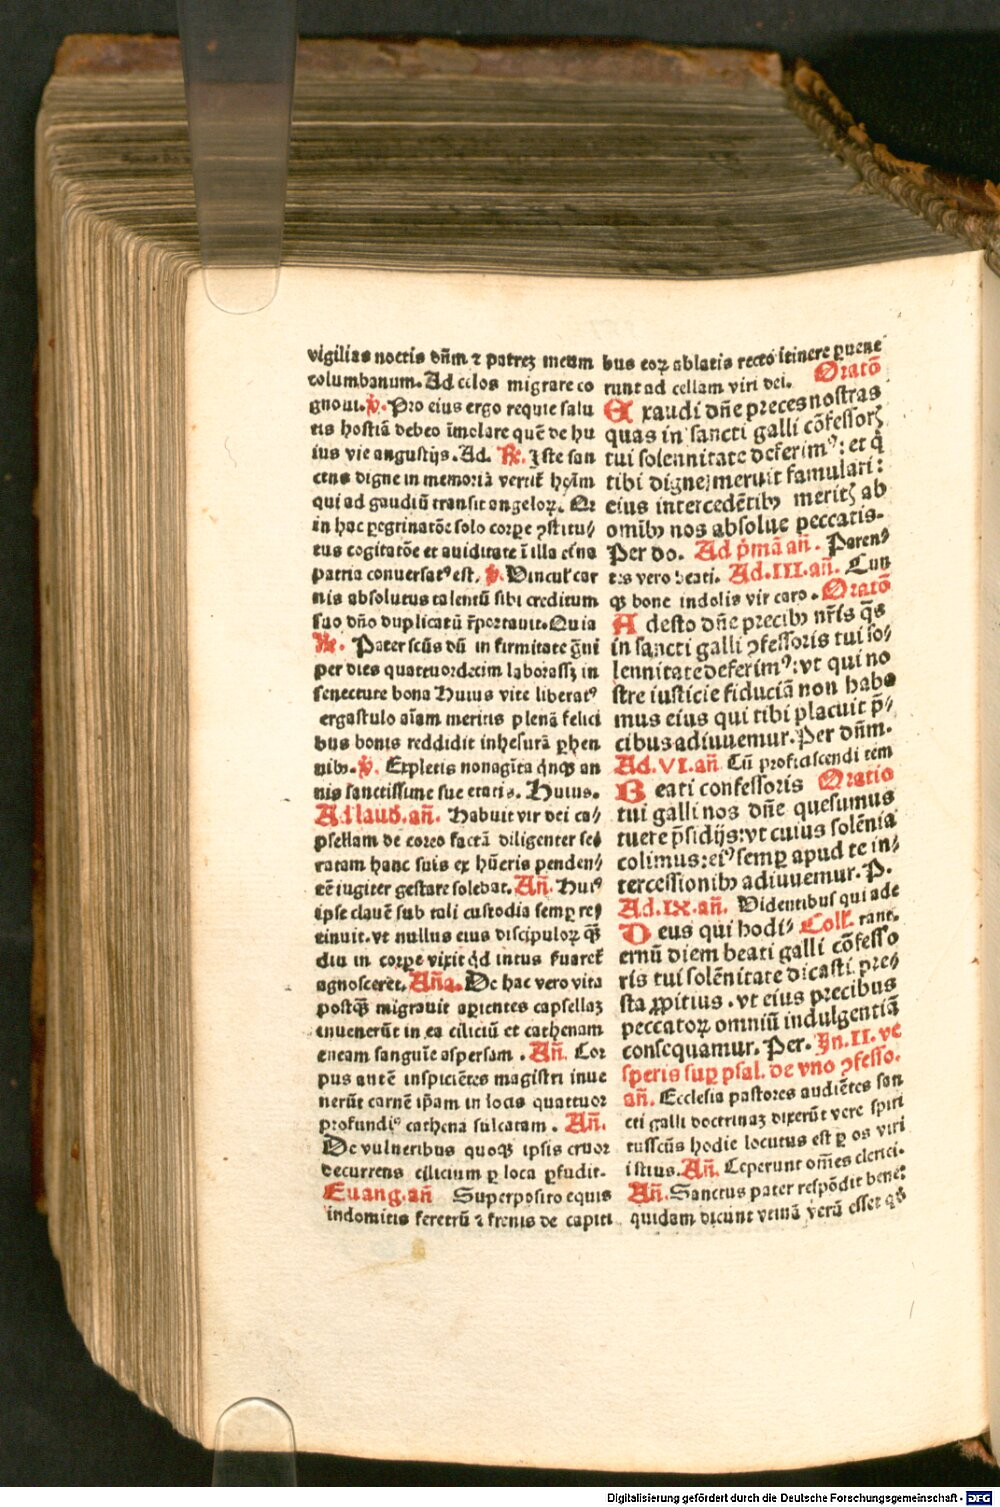 vigilias noctis dñm ⁊ patreʒ meum
columbanum. Ad celos migrare co
gnoui. ℣. Pro eius ergo requie salu
tis hostiã debeo ĩmolare quẽ de hu
ius vie angustijs. Ad. ℟. Iste san
ctus digne in memoriã
qui ad gaudiũ transit angeloꝝ. Qr
in hac ꝑegrinatõe solo corꝑe ꝯstitu⸗
tus cogitatõe et auiditate ĩ illa et̃na
patria conuersatꝰ est. ℣. car
nis absolutus talentũ sibi creditum
suo dño duplicatũ r̃portauit. Quia
℟. Pater scũs dũ in firmitate
per dies quattuordecim laborassʒ in
senectute bona Huius vite liberatꝰ
ergastulo aĩam meritis plenã felici
bus bonis reddidit inhesurã ꝑhen
nibꝰ. ℣. Expletis nonagĩta q̃nqʒ an
nis sanctissime sue etatis. Huius.
Ad laud. añ. Habuit vir dei ca⸗
psellam de coreo factã diligenter se⸗
ratam hanc suis ex hũeris penden⸗
tẽ iugiter gestare solebat. Añ. Huiꝰ
ipse clauẽ sub tali custodia semꝑ re⸗
tinuit. vt nullus eius discipuloꝝ
diu in corꝑe vixit qd intus
agnosceret. Aña. De hac vero vita
postqʒ migrauit aꝑientes capsellaʒ
inuenerũt in ea ciliciũ et cathenam
eneam sanguĩe aspersam. Añ. Cor
pus autẽ inspiciẽtes magistri inue
nerũt carnẽ ip̃am in locis quattuor
profundiꝰ cathena sulcatam. Añ.
De vulneribus quoqʒ ipsis cruor
decurrens cilicium ꝑ loca ꝑfudit.
Euang. añ Superposito equis
indomitis feretrũ ⁊ frenis de capiti
bus eoꝝ ablatis recto itinere ꝑuene
runt ad cellam viri dei. Oratõ
EXxaudi dñe preces nostras
quas in sancti galli cõfessorʒ
tui solennitate deferimꝰ: et q̃
tibi digne meruit famulari:
eius intercedẽtibꝰ meritʒ ab
omĩbꝰ nos absolue peccatis.
Per do. Ad p̃mã añ. Paren⸗
tes vero beati. Ad. III. añ. Cun
qʒ bone indolis vir caro. Oratõ
Adesto dñe precibꝰ nr̃is q̃s
in sancti galli ꝯfessoris tui so⸗
lennitate deferimꝰ: vt qui no
stre iusticie fiduciã non habe
mus eius qui tibi placuit p̃⸗
cibus adiuuemur. Per dñm.
Ad. VI. añ. Cũ proficiscendi tem
Beati confessoris Oratio
tui galli nos dñe quesumus
tuere p̃sidijs: vt cuius solẽnia
colimus: eiꝰ semꝑ apud te in⸗
tercessionibꝰ adiuuemur. P.
Ad. IX. añ. Videntibus qui ade
Deus qui hodi⸗ Coll'. rant.
ernũ diem beati galli cõfesso
ris tui solẽnitate dicasti. pre⸗
sta ꝓpitius. vt eius precibus
peccatoꝝ omniũ indulgentiã
consequamur. Per. In. II. ve
speris suꝑ psal. de vno ꝯfesso.
añ. Ecclesia pastores audiẽtes san
cti galli doctrinaʒ dixerũt vere spiri
tusscũs hodie locutus est ꝑ os viri
istius. Añ. Ceperunt om̃es clerici.
Añ. Sanctus pater respõdit bene:
quidam dicunt verã esset
Digitalisierung gefördert durch die Deutsche Forschungsgemeinschaft - DFG